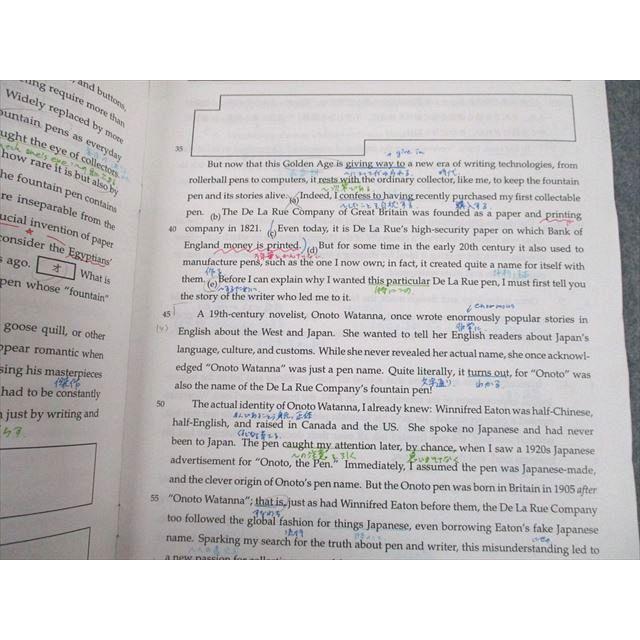 and buttons,
ing require more than
Widely replaced by more
ountain pens as everyday
ught the eye of collectors
how rare it is but also by
he fountain pen contains
re inseparable from the
ucial invention of paper
consider the Egyptians'
s ago. オ What is
pen whose "fountain"
goose quill, or other
ppear romantic when
sing his masterpieces
傑作
had to be constantly
just by writing and
35
give in
But now that this Golden Age is giving way to a new era of writing technologies, from
時代
rollerball pens to computers, it rests with the ordinary collector, like me, to keep the fountain
pen and its stories alive. (a) Indeed, I confess to having recently purchased my first collectable
購入する
pen. (b) The De La Rue Company of Great Britain was founded as a paper and printing
40 company in 1821. (c) Even today, it is De La Rue's high-security paper on which Bank of
England money is printed. (d) But for some time in the early 20th century it also used to
manufacture pens, such as the one I now own; in fact, it created quite a name for itself with
them. (e) Before I can explain why I wanted this particular De La Rue pen, I must first tell you
the story of the writer who led me to it.
enormous
45 A 19th-century novelist, Onoto Watanna, once wrote enormously popular stories in
非常に
English about the West and Japan. She wanted to tell her English readers about Japan's
language, culture, and customs. While she never revealed her actual name, she once acknowl-
edged "Onoto Watanna" was just a pen name. Quite literally, it turns out, for "Onoto" was
文字通り わかる
also the name of the De La Rue Company's fountain pen!
50 The actual identity of Onoto Watanna, I already knew: Winnifred Eaton was half-Chinese,
half-English, and raised in Canada and the US. She spoke no Japanese and had never
been to Japan. The pen caught my attention later, by chance, when I saw a 1920s Japanese
〜の注意を引く
advertisement for "Onoto, the Pen." Immediately, I assumed the pen was Japanese-made,
and the clever origin of Onoto's pen name. But the Onoto pen was born in Britain in 1905 after
55 "Onoto Watanna"; that is, just as had Winnifred Eaton before them, the De La Rue Company
すなわち
too followed the global fashion for things Japanese, even borrowing Eaton's fake Japanese
流行
name. Sparking my search for the truth about pen and writer, this misunderstanding led to
a new passion for